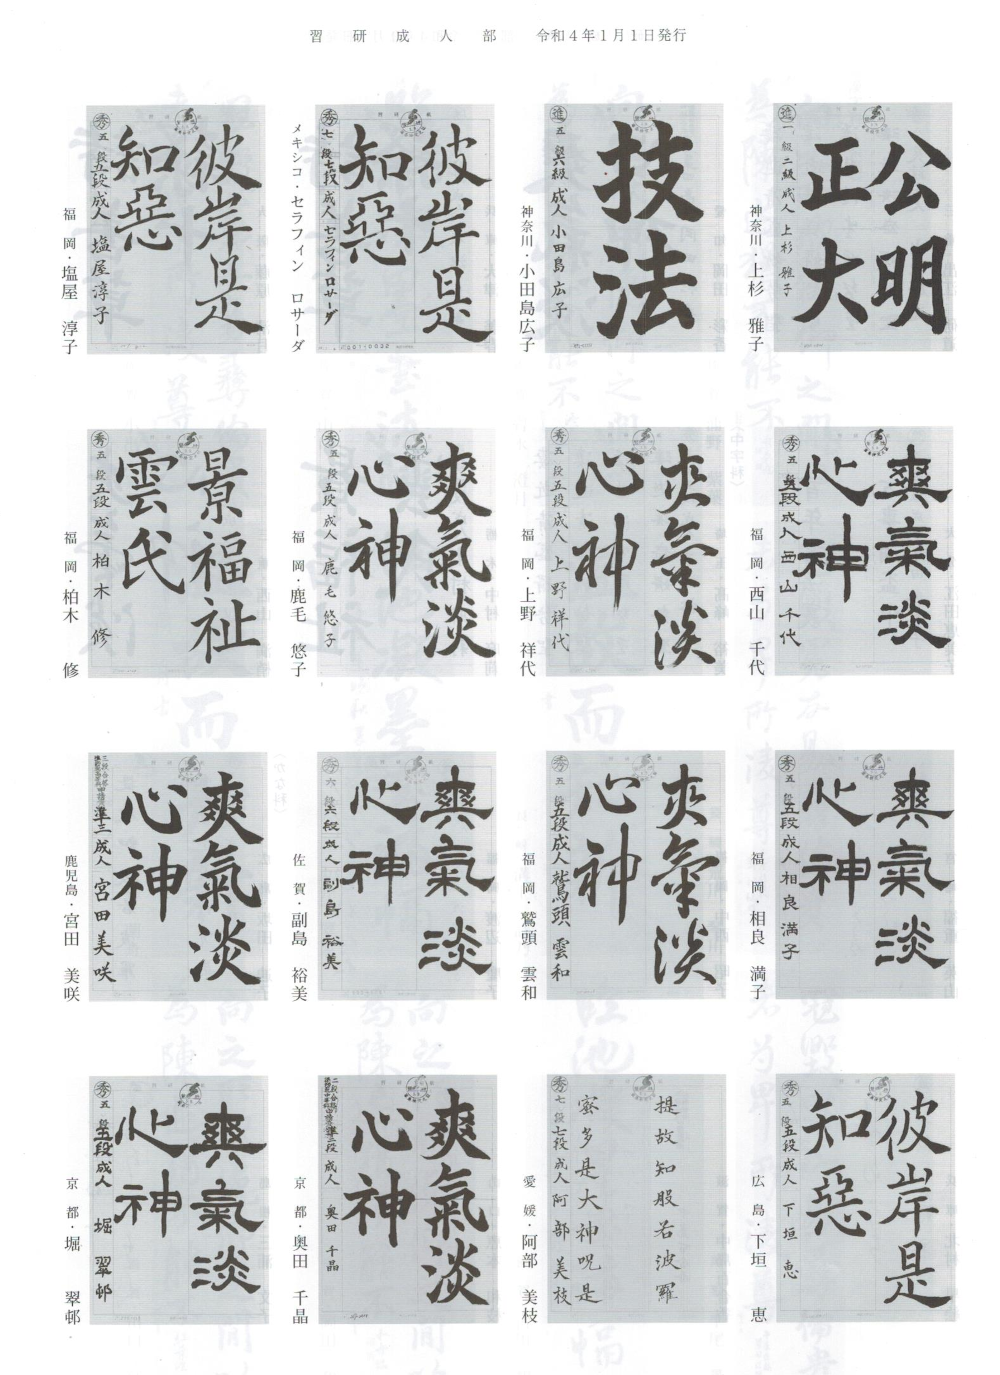 習研成人部 令和4年1月1日発行
公明
正大
進 一級 二級 成人 上杉雅子
神奈川・上杉 雅子
技法
進 五級 六級 成人 小田島広子
神奈川・小田島広子
彼岸是
知惡
秀 七段 七段 成人 セラフィンロサーダ
メキシコ・セラフィン ロサーダ
彼岸是
知惡
秀 五段 五段 成人 塩屋淳子
福岡・塩屋 淳子
爽氣淡
心神
秀 五段 五段 成人 西山千代
福岡・西山 千代
爽氣淡
心神
秀 五段 五段 成人 上野祥代
福岡・上野 祥代
爽氣淡
心神
秀 五段 五段 成人 鹿毛悠子
福岡・鹿毛 悠子
景福祉
雲氏
秀 五段 五段 成人 柏木修
福岡・柏木 修
爽氣淡
心神
秀 五段 五段 成人 相良満子
福岡・相良 満子
爽氣淡
心神
秀 五段 五段 成人 鷲頭雲和
福岡・鷲頭 雲和
爽氣淡
心神
秀 六段 六段 成人 副島裕美
佐賀・副島 裕美
爽氣淡
心神
三段合格 準三 成人 宮田美咲
鹿児島・宮田 美咲
彼岸是
知惡
秀 五段 五段 成人 下垣恵
広島・下垣 恵
提故知般若波羅
蜜多是大神呪是
秀 七段 七段 成人 阿部美枝
愛媛・阿部 美枝
爽氣淡
心神
二段合格 準二段 成人 奥田千晶
京都・奥田 千晶
爽氣淡
心神
秀 五段 五段 成人 堀翠邨
京都・堀 翠邨